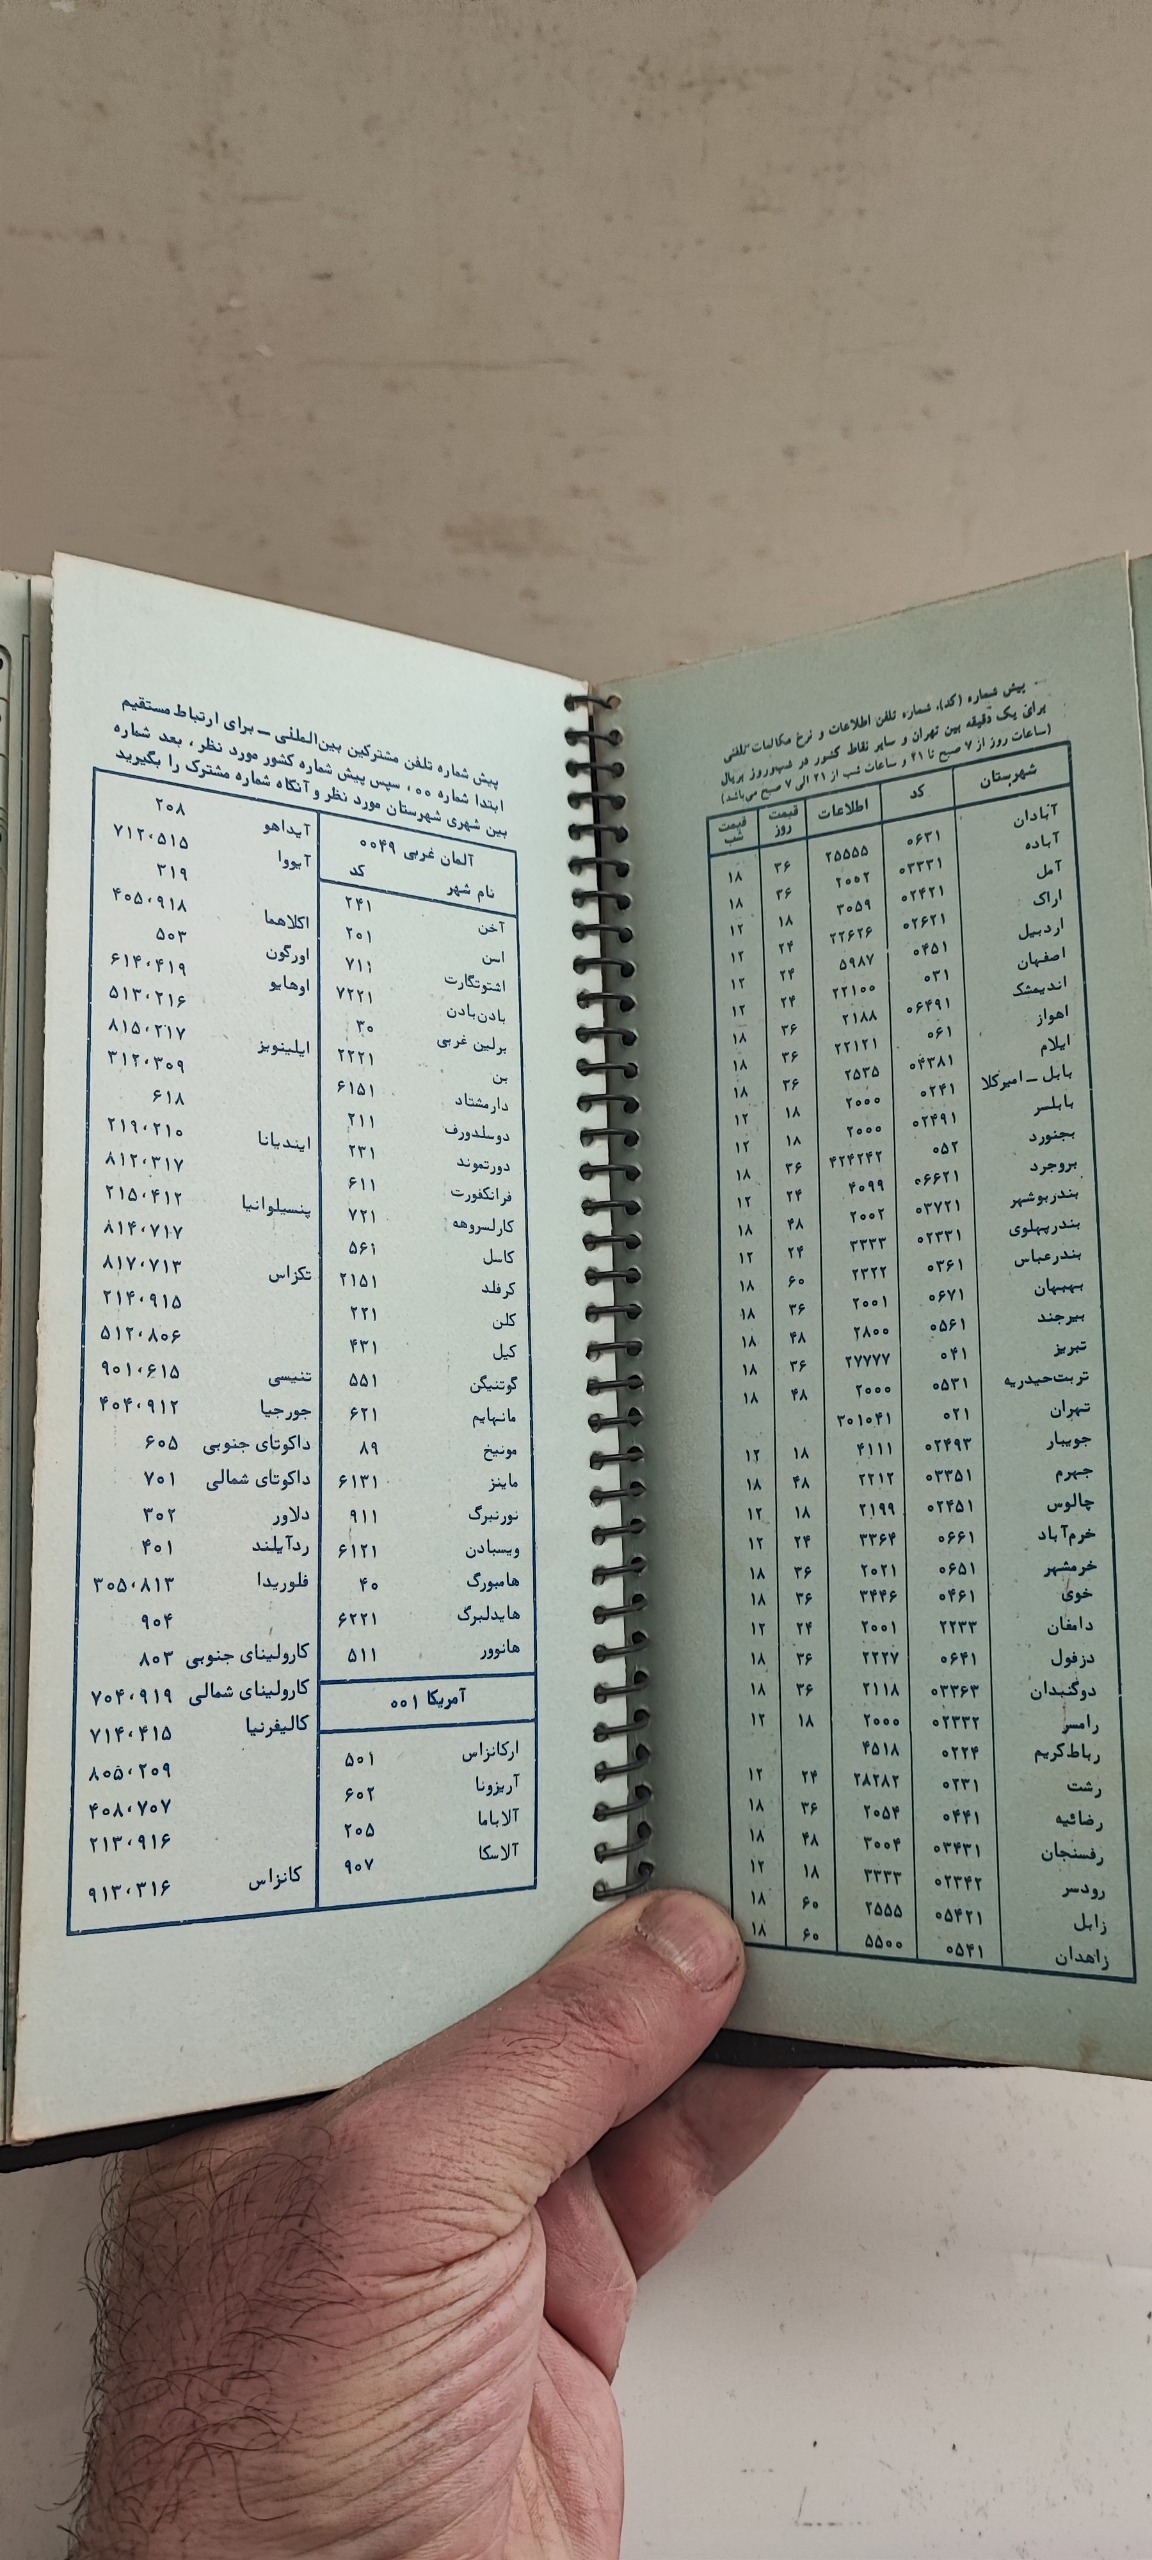 پیش شماره (کد)، شماره تلفن اطلاعات و نرخ مکالمات تلفنی
برای یک دقیقه بین تهران و سایر نقاط کشور در شب‌وروز بریال
(ساعات روز از ۷ صبح تا ۲۱ و ساعات شب از ۲۱ الی ۷ صبح می‌باشد)
شهرستان کد اطلاعات قیمت روز قیمت شب
آبادان ۰۶۳۱ ۲۵۵۵۵ ۳۶ ۱۸
آباده ۰۳۳۳۱ ۲۰۰۲ ۳۶ ۱۸
آمل ۰۲۴۲۱ ۳۰۵۹ ۱۸ ۱۲
اراک ۰۲۶۲۱ ۲۲۶۲۶ ۲۴ ۱۲
اردبیل ۰۴۵۱ ۵۹۸۷ ۲۴ ۱۲
اصفهان ۰۳۱ ۲۲۱۰۰ ۲۴ ۱۲
اندیمشک ۰۶۴۹۱ ۲۱۸۸ ۳۶ ۱۸
اهواز ۰۶۱ ۲۲۱۲۱ ۳۶ ۱۸
ایلام ۰۴۳۸۱ ۲۵۳۵ ۳۶ ۱۸
بابل ــ امیرکلا ۰۲۴۱ ۲۰۰۰ ۱۸ ۱۲
بابلسر ۰۲۴۹۱ ۲۰۰۰ ۱۸ ۱۲
بجنورد ۰۵۲ ۴۲۴۲۴۲ ۳۶ ۱۸
بروجرد ۰۶۶۲۱ ۴۰۹۹ ۲۴ ۱۲
بندربوشهر ۰۳۷۲۱ ۲۰۰۲ ۴۸ ۱۸
بندرپهلوی ۰۲۳۳۱ ۳۳۳۳ ۲۴ ۱۲
بندرعباس ۰۳۶۱ ۲۳۲۲ ۶۰ ۱۸
بهبهان ۰۶۷۱ ۲۰۰۱ ۳۶ ۱۸
بیرجند ۰۵۶۱ ۲۸۰۰ ۴۸ ۱۸
تبریز ۰۴۱ ۲۷۷۷۷ ۳۶ ۱۸
تربت‌حیدریه ۰۵۳۱ ۲۰۰۰ ۴۸ ۱۸
تهران ۰۲۱ ۳۰۱۰۴۱
جویبار ۰۲۴۹۳ ۴۱۱۱ ۱۸ ۱۲
جهرم ۰۳۳۵۱ ۲۲۱۲ ۴۸ ۱۸
چالوس ۰۲۴۵۱ ۲۱۹۹ ۱۸ ۱۲
خرم‌آباد ۰۶۶۱ ۳۳۶۴ ۲۴ ۱۲
خرمشهر ۰۶۵۱ ۲۰۲۱ ۳۶ ۱۸
خوی ۰۴۶۱ ۳۴۴۶ ۳۶ ۱۸
دامغان ۲۲۳۳ ۲۰۰۱ ۲۴ ۱۲
دزفول ۰۶۴۱ ۲۲۲۷ ۳۶ ۱۸
دوگنبدان ۰۳۳۶۳ ۲۱۱۸ ۳۶ ۱۸
رامسر ۰۲۳۳۲ ۲۰۰۰ ۱۸ ۱۲
رباط‌کریم ۰۲۲۴ ۴۵۱۸
رشت ۰۲۳۱ ۲۸۲۸۲ ۲۴ ۱۲
رضائیه ۰۴۴۱ ۲۰۵۴ ۳۶ ۱۸
رفسنجان ۰۳۴۳۱ ۳۰۰۴ ۴۸ ۱۸
رودسر ۰۲۳۴۲ ۳۳۳۳ ۱۸ ۱۲
زابل ۰۵۴۲۱ ۲۵۵۵ ۶۰ ۱۸
زاهدان ۰۵۴۱ ۵۵۰۰ ۶۰ ۱۸
پیش شماره تلفن مشترکین بین‌المللی ــ برای ارتباط مستقیم
ابتدا شماره ۰۰، سپس پیش شماره کشور مورد نظر، بعد شماره
بین شهری شهرستان مورد نظر و آنگاه شماره مشترک را بگیرید
آلمان غربی ۰۰۴۹
نام شهر کد
آخن ۲۴۱
اسن ۲۰۱
اشتوتگارت ۷۱۱
بادن‌بادن ۷۲۲۱
برلین غربی ۳۰
بن ۲۲۲۱
دارمشتاد ۶۱۵۱
دوسلدورف ۲۱۱
دورتموند ۲۳۱
فرانکفورت ۶۱۱
کارلسروهه ۷۲۱
کاسل ۵۶۱
کرفلد ۲۱۵۱
کلن ۲۲۱
کیل ۴۳۱
گوتنیگن ۵۵۱
مانهایم ۶۲۱
مونیخ ۸۹
ماینز ۶۱۳۱
نورنبرگ ۹۱۱
ویسبادن ۶۱۲۱
هامبورگ ۴۰
هایدلبرگ ۶۲۲۱
هانوور ۵۱۱
آمریکا ۰۰۱
ارکانزاس ۵۰۱
آریزونا ۶۰۲
آلاباما ۲۰۵
آلاسکا ۹۰۷
آیداهو ۲۰۸
آیووا ۷۱۲،۵۱۵
۳۱۹
اکلاهما ۴۰۵،۹۱۸
اورگون ۵۰۳
اوهایو ۶۱۴،۴۱۹
۵۱۳،۲۱۶
ایلینویز ۸۱۵،۲۱۷
۳۱۲،۳۰۹
۶۱۸
ایندیانا ۲۱۹،۲۱۰
۸۱۲،۳۱۷
پنسیلوانیا ۲۱۵،۴۱۲
۸۱۴،۷۱۷
تکزاس ۸۱۷،۷۱۳
۲۱۴،۹۱۵
۵۱۲،۸۰۶
تنیسی ۹۰۱،۶۱۵
جورجیا ۴۰۴،۹۱۲
داکوتای جنوبی ۶۰۵
داکوتای شمالی ۷۰۱
دلاور ۳۰۲
ردآیلند ۴۰۱
فلوریدا ۳۰۵،۸۱۳
۹۰۴
کارولینای جنوبی ۸۰۳
کارولینای شمالی ۷۰۴،۹۱۹
کالیفرنیا ۷۱۴،۴۱۵
۸۰۵،۲۰۹
۴۰۸،۷۰۷
۲۱۳،۹۱۶
کانزاس ۹۱۳،۳۱۶